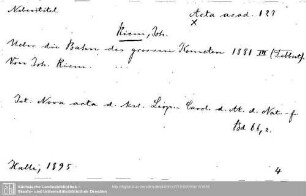 Nebentitel Acta acad. 127
x
Riem, Joh.
Ueber die Bahn des grossen Kometen 1881 III (Tebbutt).
Von Joh. Riem
In: Nova acta d. Ksl. Leop. Carol. d. Ak. d. Nat-f
Bd 66,2.
Halle, 1895
4
Sächsische Landesbibliothek -
Staats- und Universitätsbibliothek Dresden